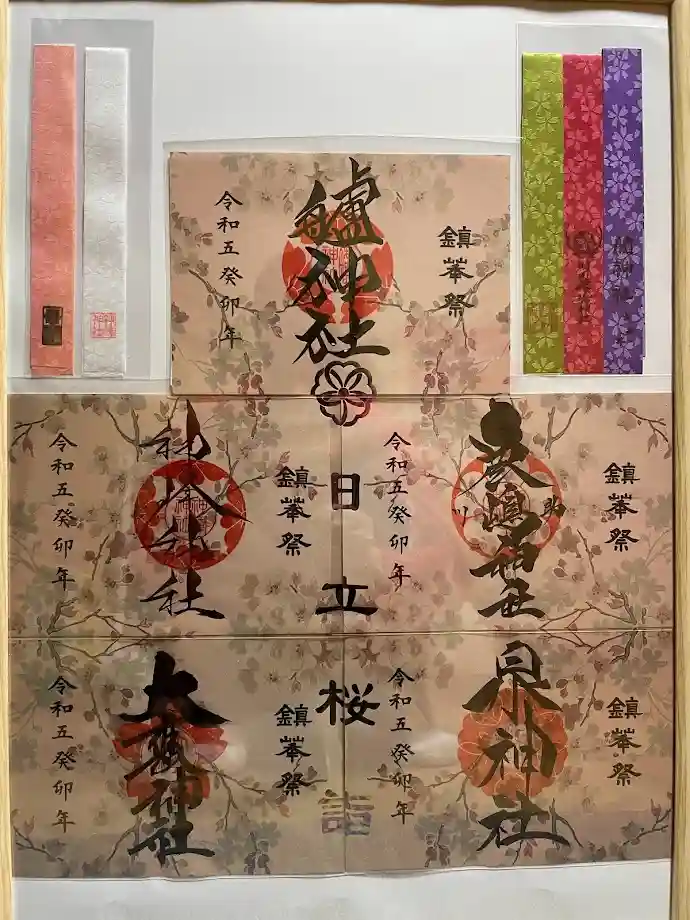 鎮華祭
艫神社
令和五癸卯年
鎮華祭
助川
鹿嶋神社
令和五癸卯年
鎮華祭
神峰神社
令和五癸卯年
鎮華祭
泉神社
令和五癸卯年
鎮華祭
大甕神社
令和五癸卯年
日立桜詣